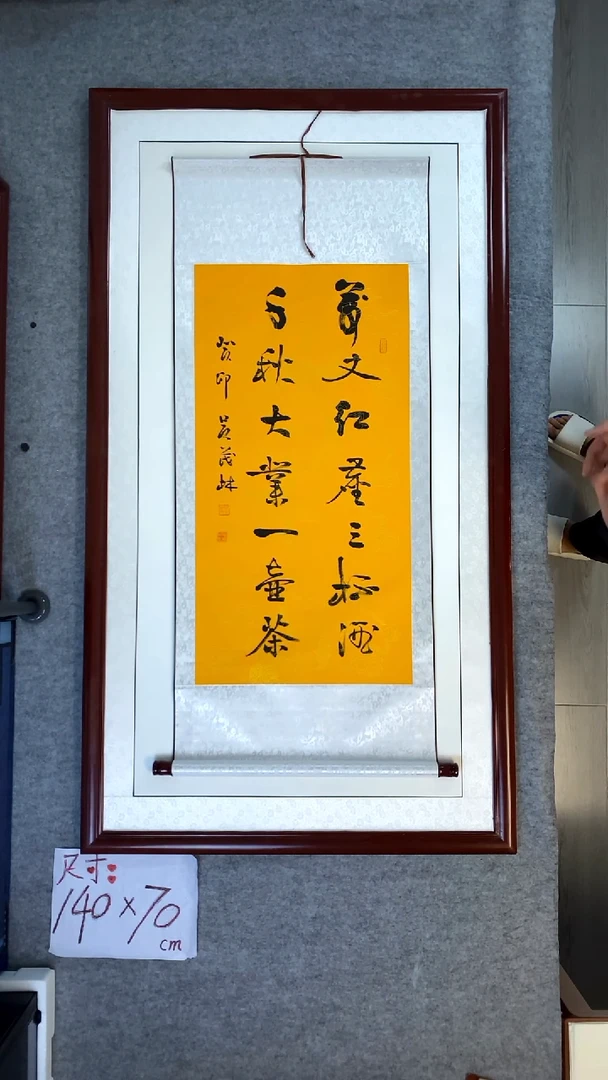 萬丈红塵三杯酒
千秋大業一壺茶
癸卯 吴茂林
尺寸:
140×70
cm